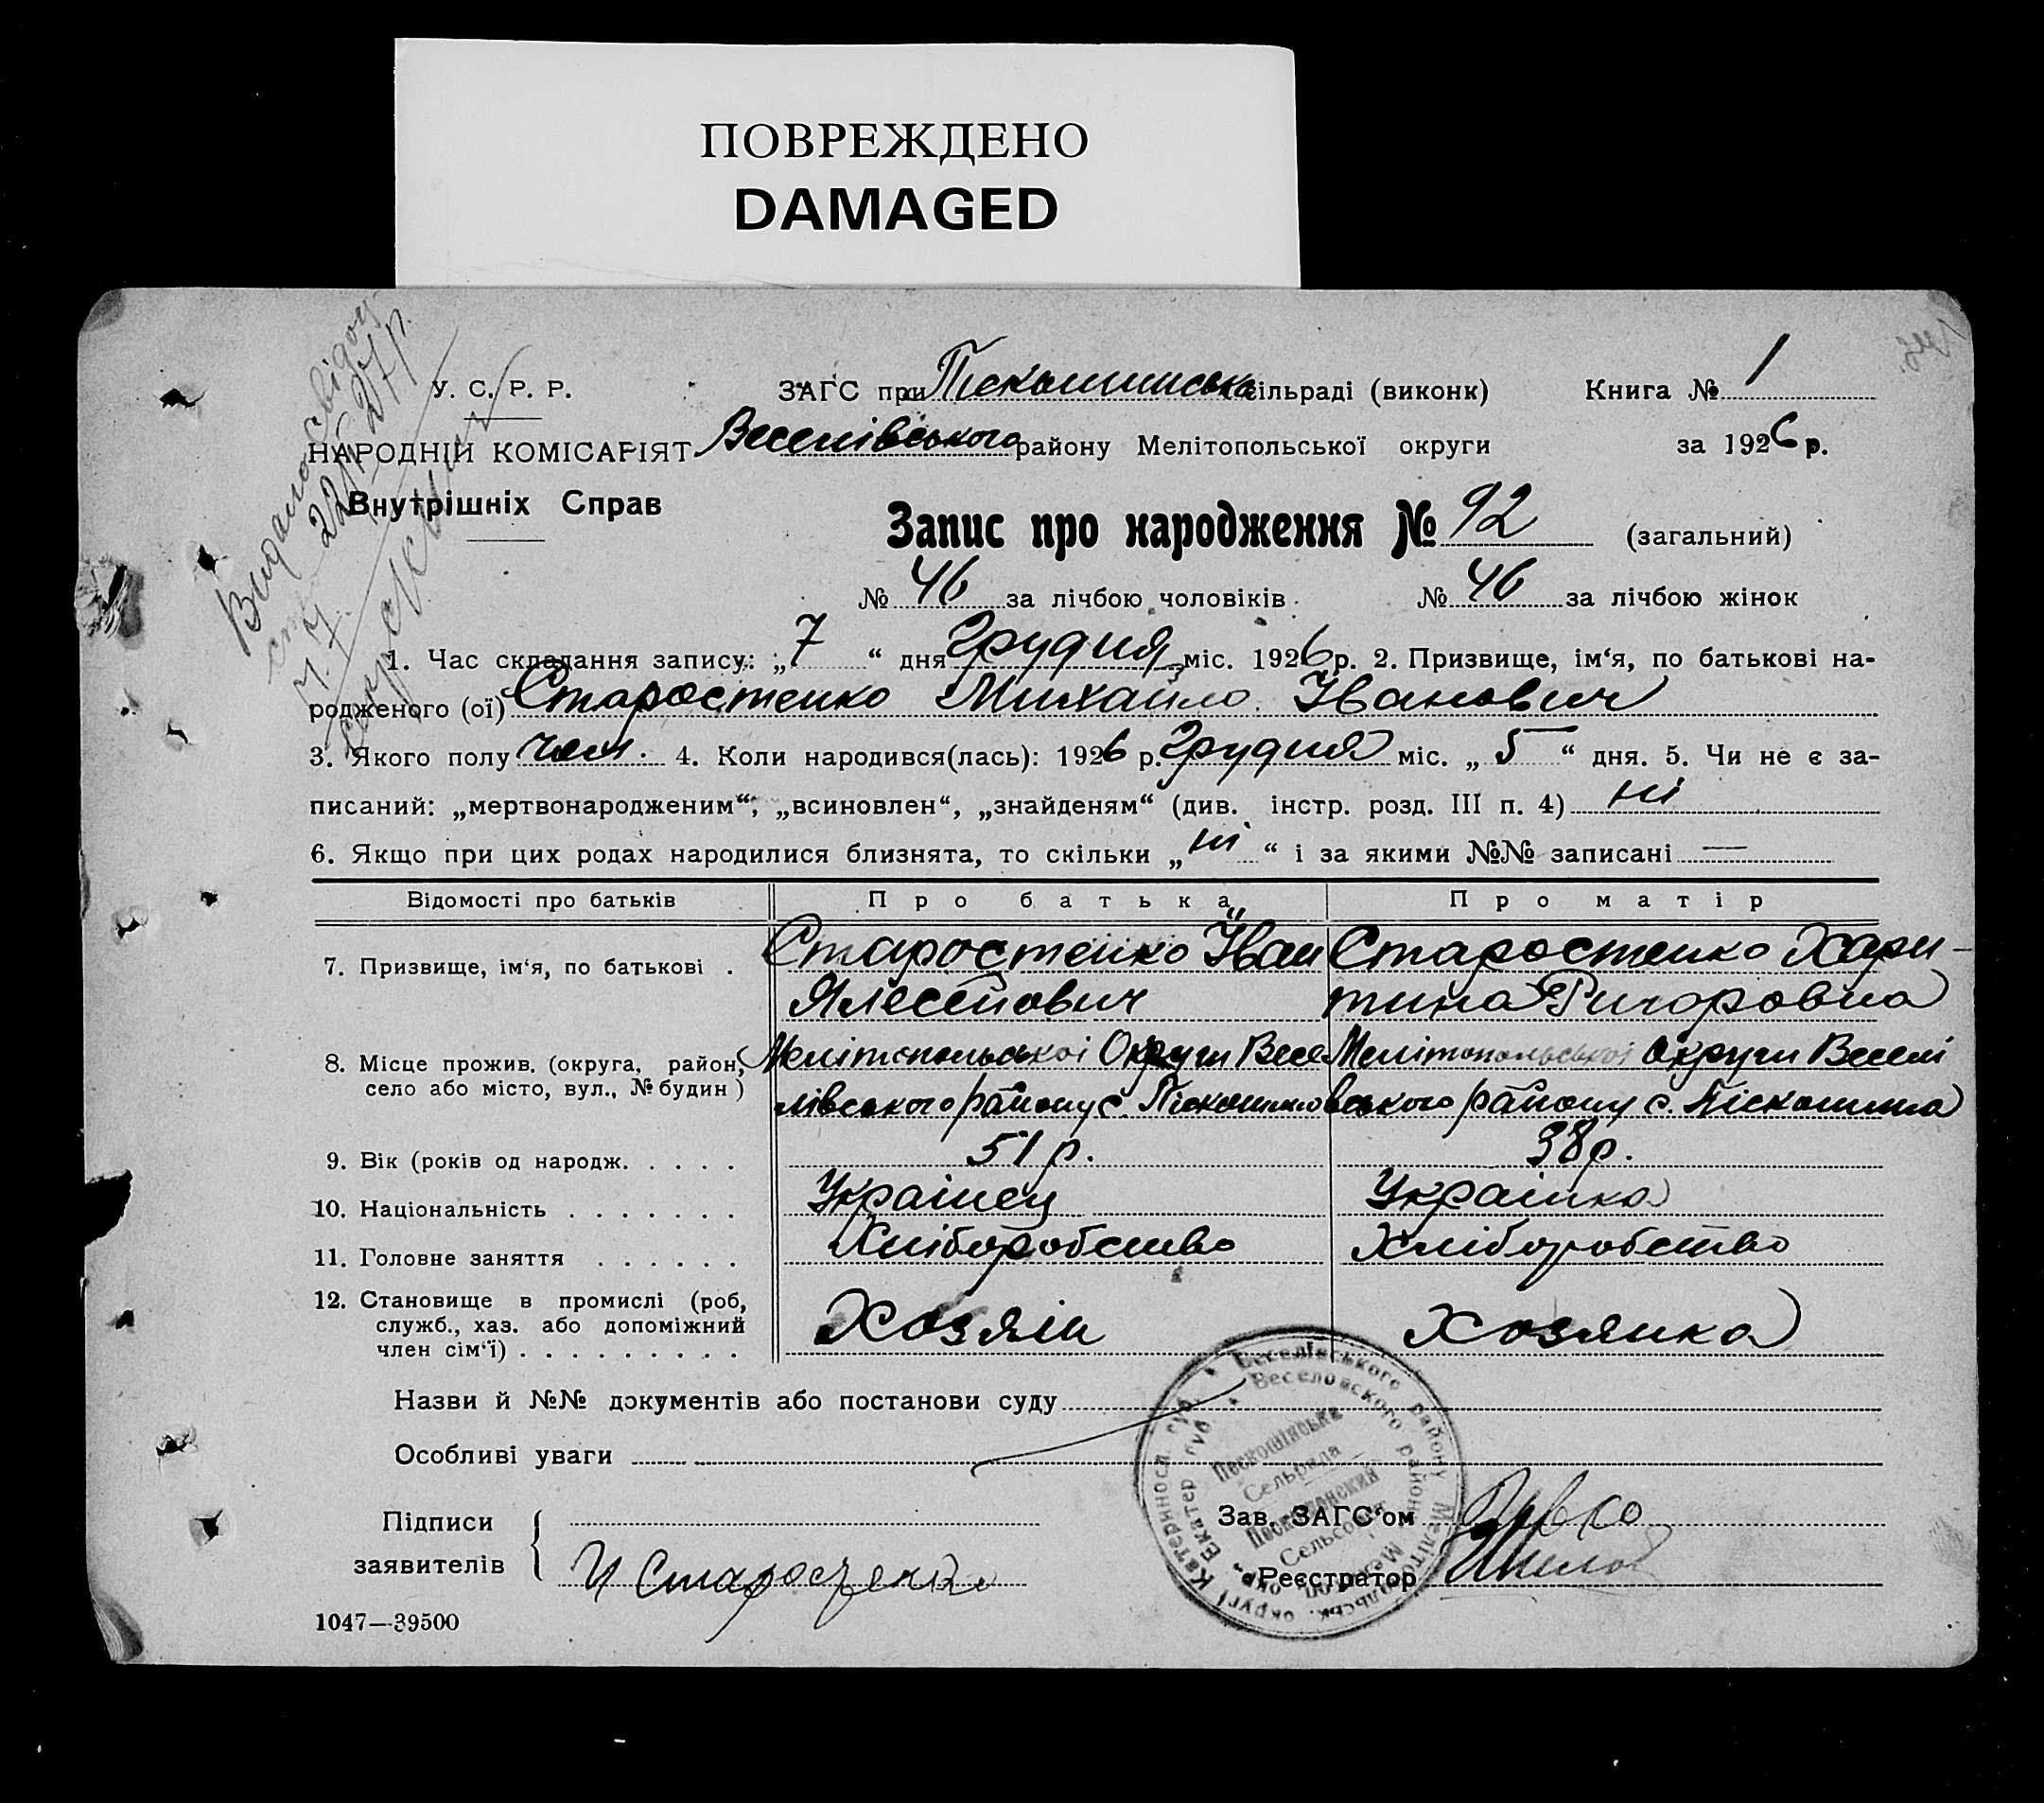 ПОВРЕЖДЕНО
DAMAGED
У. С. Р. Р.
ЗАГС при Піскошинська сільраді (виконк)
Книга № 1
НАРОДНІЙ КОМІСАРІЯТ
Веселівського району Мелітопольської округи
за 1926 р.
Внутрішніх Справ
Запис про народження № 92 (загальний)
№ 46 за лічбою чоловіків № 46 за лічбою жінок
1. Час складання запису: „7“ дня Грудня міс. 1926 р. 2. Призвище, ім‘я, по батькові на-
родженого (ої) Старостенко Михайло Іванович
3. Якого полу чол. 4. Коли народився(лась): 1926 р. Грудня міс. „5“ дня. 5. Чи не є за-
писаний: „мертвонародженим“, „всиновлен“, „знайденям“ (див. інстр. розд. III п. 4) ні
6. Якщо при цих родах народилися близнята, то скільки „ні“ і за якими №№ записані —
Відомості про батьків Про батька Про матір
7. Призвище, ім‘я, по батькові . Старостенко Іван Старостенко Хари-
тина Ригоровна
8. Місце прожив. (округа, район, Мелітопольської Округи Весе Мелітопольської Округи Веселі
село або місто, вул., № будин) лівського району с. Піскошино вського району с. Піскошина
9. Вік (років од народж. . . . . 51 р. 38 р.
10. Національність . . . . . . . Українец Українка
11. Головне заняття . . . . . . Хліборобство Хліборобство
12. Становище в промислі (роб,
служб., хаз. або допоміжний Хозяін Хозянка
член сім‘ї) . . . . . . . . .
Назви й №№ документів або постанови суду
Особливі уваги
Підписи
заявителів
И Старостенко
Зав. ЗАГС‘ом
Реєстратор
Веселівського району Мелітопольськ. округі Катериносл. губ.
Веселовского района Мелитопол. окр. Екатер губ
Пескошінська
Сельрада
Пескошинский
Сельсовет
1047—39500